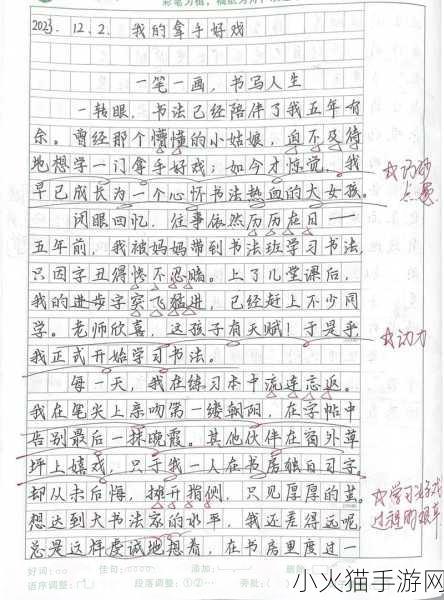 2023. 12. 2. 我的拿手好戏
一笔一画，书写人生
一转眼，书法已经陪伴了我五年有
余。曾经那个懵懂的小姑娘，迫不及待
地想学一门拿手好戏；如今才惊觉，我
早已成长为一个心怀书法热血的大女孩。
闭眼回忆，往事依然历历在目——
五年前，我被妈妈带到书法班学习书法，
只因字丑得惨不忍睹。上了几堂课后，
我的进步字突飞猛进，已经赶上不少同
学。老师欣喜，这孩子有天赋！于是乎，
我正式开始学习书法。
每一天，我在练习本中流连忘返。
我在笔尖上亲吻第一缕朝阳，在字帖中
告别最后一抹晚霞。其他伙伴在窗外草
坪上嬉戏，只于我一人在书房独自习字，
却从未后悔，摊开指侧，只见厚厚的茧。
想达到大书法家的水平，我还差得远呢，
总是这样虔诚地想着，在书房里度过一
点题
我动力
我学习
过程的艰辛
好词：
佳句：
添加：
删除
语序调整：
段落调整：①②…
旁批：
小火猫手游网